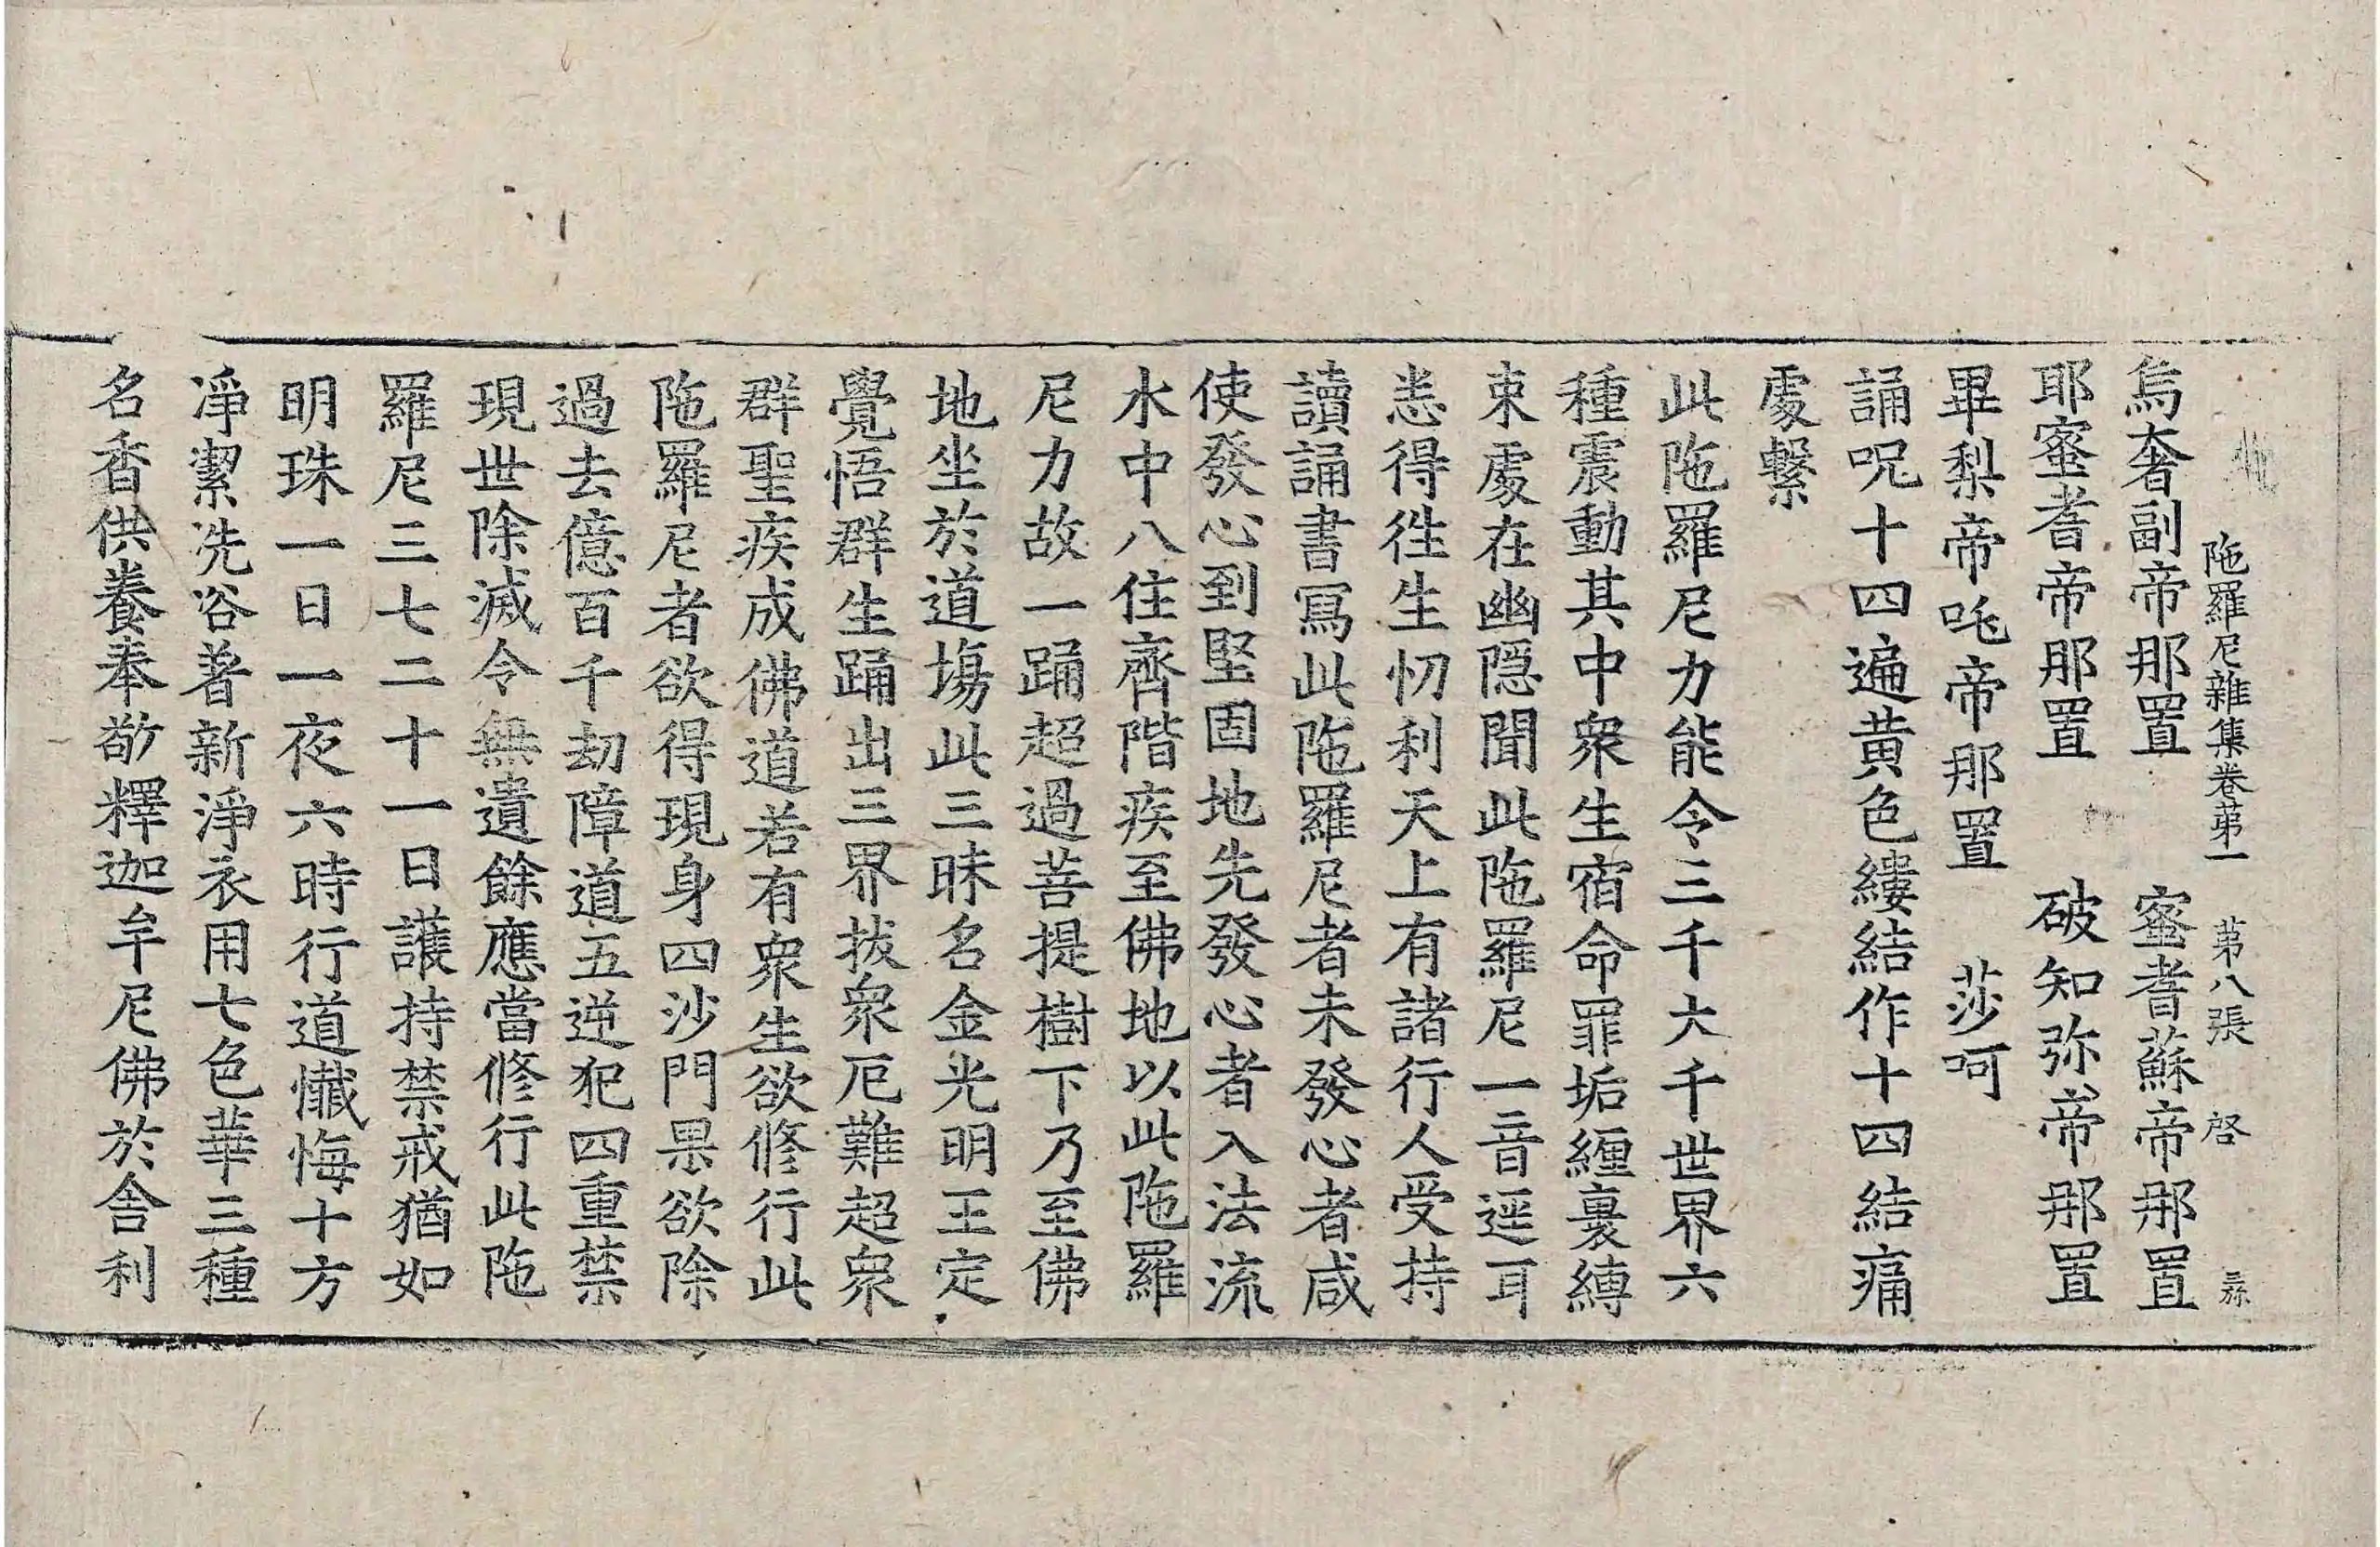 陁羅尼雜集卷苐一 苐八張 啓
烏奢副帝那置 蜜耆蘇帝那置
耶蜜耆帝那置 破知弥帝那置
畢梨帝吒帝那置 莎呵
誦呪十四遍黄色縷結作十四結痛
處繫
此陁羅尼力能令三千大千世界六
種震動其中衆生宿命罪垢纒裏縛
束處在幽隠聞此陁羅尼一音逕耳
恙得徃生忉利天上有諸行人受持
讀誦書冩此陁羅尼者未發心者咸
使發心到堅固地先發心者入法流
水中八住齊階疾至佛地以此陁羅
尼力故一踊超過菩提樹下乃至佛
地坐於道塲此三昧名金光明王定
覺悟群生踊出三界拔衆厄難超衆
群聖疾成佛道若有衆生欲修行此
陁羅尼者欲得現身四沙門果欲除
過去億百千劫障道五逆犯四重禁
現世除滅令無遺餘應當修行此陁
羅尼三七二十一日護持禁戒猶如
明珠一日一夜六時行道懺悔十方
淨潔洗浴著新淨衣用七色華三種
名香供養奉敬釋迦牟尼佛於舎利